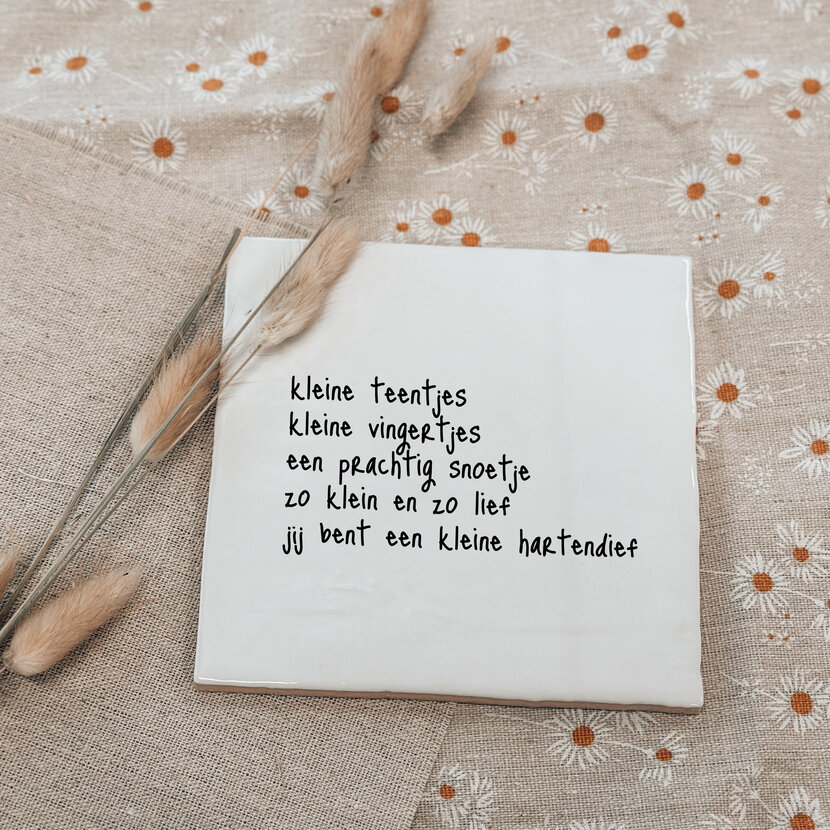 kleine teentjes
kleine vingertjes
een prachtig snoetje
zo klein en zo lief
jij bent een kleine hartendief